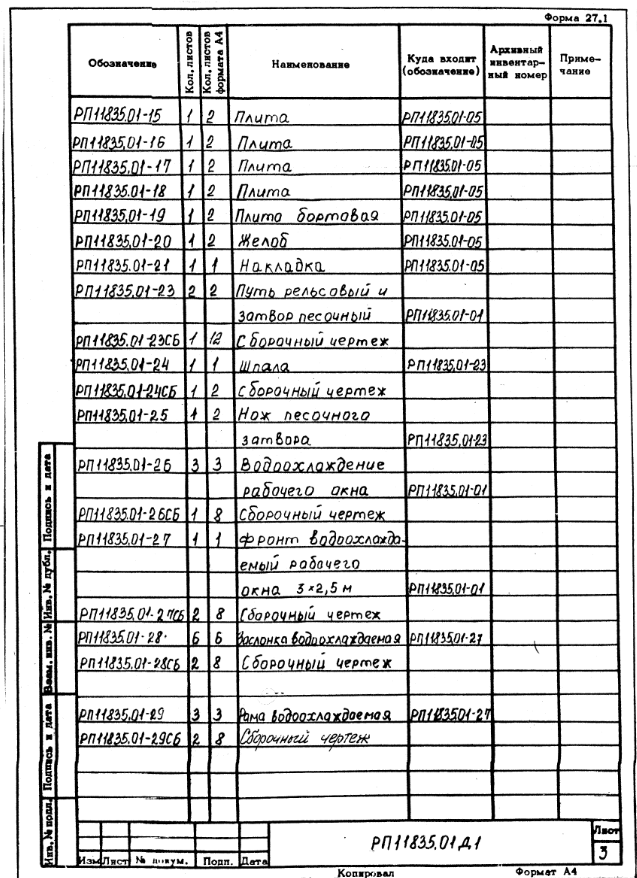 Форма 27.1
Обозначение Кол. листов Кол. листов формата А4 Наименование Куда входит (обозначение) Архивный инвентарный номер Примечание
РП11835.01-15 1 2 Плита РП11835.01-05
РП11835.01-16 1 2 Плита РП11835.01-05
РП11835.01-17 1 2 Плита РП11835.01-05
РП11835.01-18 1 2 Плита РП11835.01-05
РП11835.01-19 1 2 Плита бортовая РП11835.01-05
РП11835.01-20 1 2 Желоб РП11835.01-05
РП11835.01-21 1 1 Накладка РП11835.01-05
РП11835.01-23 2 2 Путь рельсовый и
затвор песочный РП11835.01-01
РП11835.01-23СБ 1 12 Сборочный чертеж
РП11835.01-24 1 1 Шпала РП11835.01-23
РП11835.01-24СБ 1 2 Сборочный чертеж
РП11835.01-25 1 2 Нож песочного
затвора РП11835.01-23
РП11835.01-26 3 3 Водоохлаждение
рабочего окна РП11835.01-01
РП11835.01-26СБ 1 8 Сборочный чертеж
РП11835.01-27 1 1 Фронт водоохлажда-
емый рабочего
окна 3×2,5 м РП11835.01-01
РП11835.01-27СБ 2 8 Сборочный чертеж
РП11835.01-28 6 6 Заслонка водоохлаждаемая РП11835.01-27
РП11835.01-28СБ 2 8 Сборочный чертеж
РП11835.01-29 3 3 Рама водоохлаждаемая РП11835.01-27
РП11835.01-29СБ 2 8 Сборочный чертеж
Подпись и дата
Инв. № дубл.
Взам. инв. №
Подпись и дата
Инв. № подл.
РП11835.01Д1
Лист
3
Изм Лист № докум. Подп. Дата
Копировал Формат А4